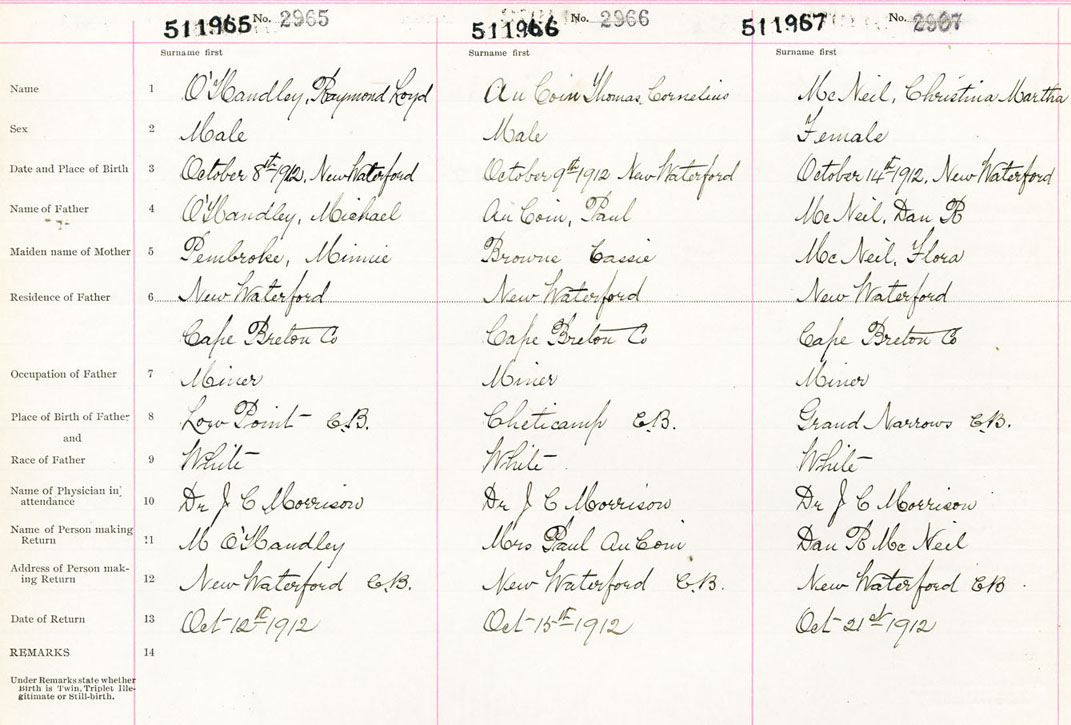 511965 No. 2965 511966 No. 2966 511967 No. 2967
Surname first Surname first Surname first
Name 1 O'Handley, Raymond Loyd Au Coin Thomas Cornelius McNeil, Christina Martha
Sex 2 Male Male Female
Date and Place of Birth 3 October 8th 1912, New Waterford October 9th 1912 New Waterford October 14th 1912, New Waterford
Name of Father 4 O'Handley, Michael Au Coin, Paul McNeil, Dan R
Maiden name of Mother 5 Pembroke, Minnie Browne Cassie McNeil, Flora
Residence of Father 6 New Waterford New Waterford New Waterford
Cape Breton Co Cape Breton Co Cape Breton Co
Occupation of Father 7 Miner Miner Miner
Place of Birth of Father 8 Low Point C.B. Cheticamp C.B. Grand Narrows C.B.
and
Race of Father 9 White White White
Name of Physician in
attendance 10 Dr J C Morrison Dr J C Morrison Dr J C Morrison
Name of Person making
Return 11 M O'Handley Mrs Paul Au Coin Dan R McNeil
Address of Person mak-
ing Return 12 New Waterford C.B. New Waterford C.B. New Waterford CB
Date of Return 13 Oct 12th 1912 Oct 15th 1912 Oct 21st 1912
REMARKS 14
Under Remarks state whether
Birth is Twin, Triplet Ille-
gitimate or Still-birth.